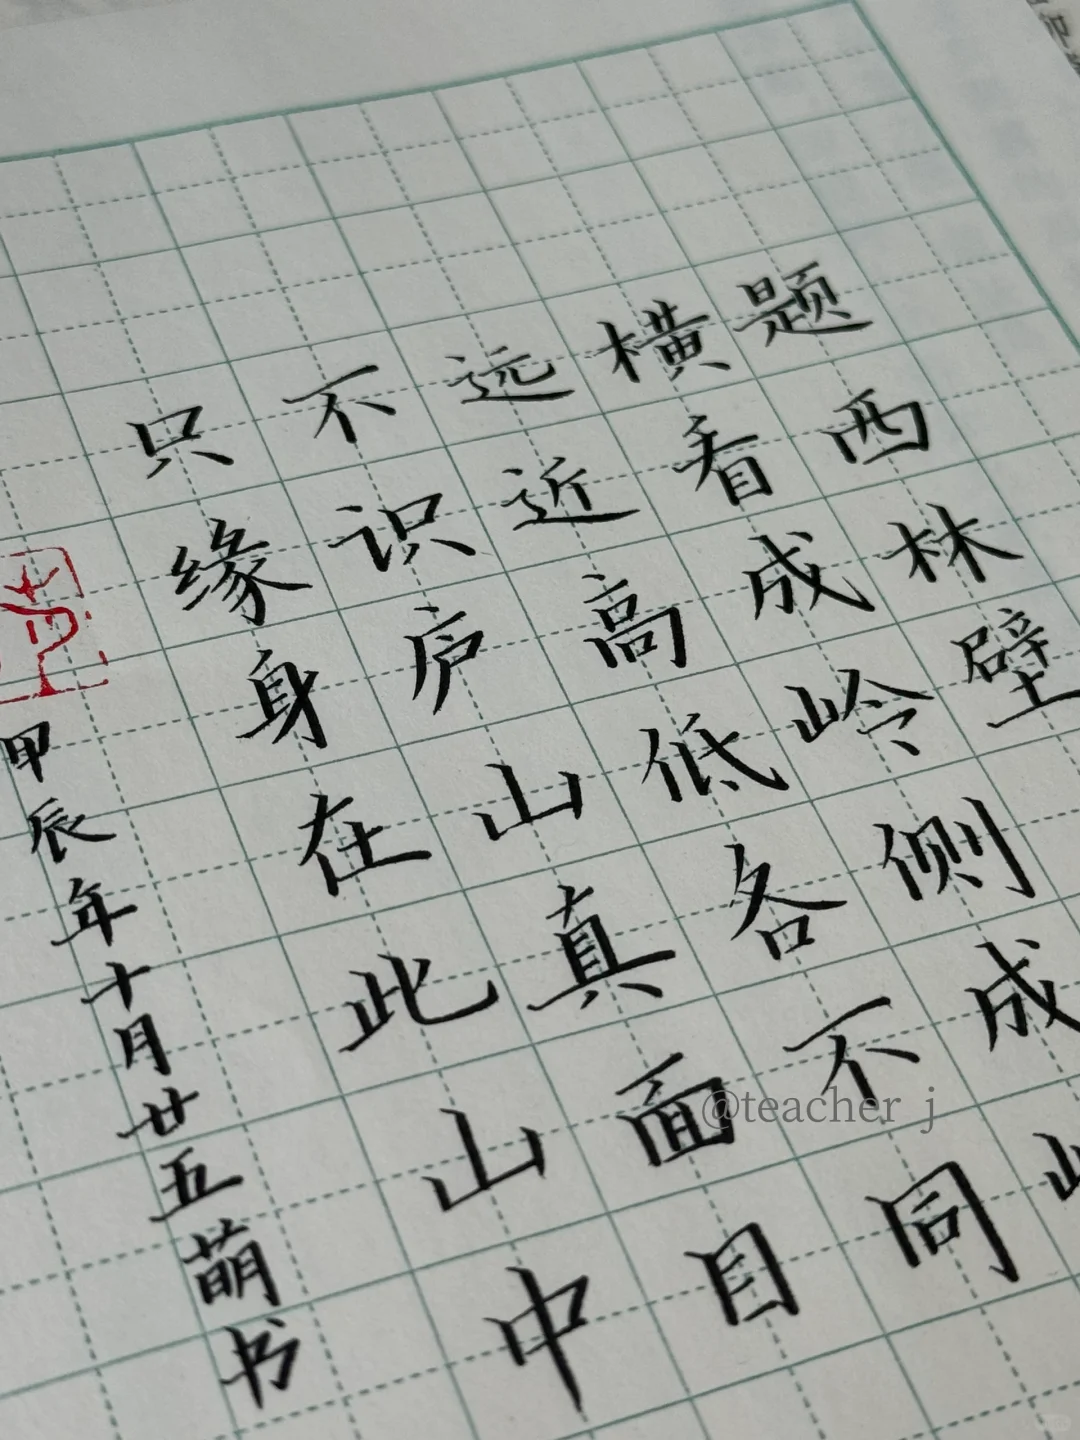 题西林壁
横看成岭侧成
远近高低各不同
不识庐山真面目
只缘身在此山中
甲辰年十月廿五萌书
@teacher j